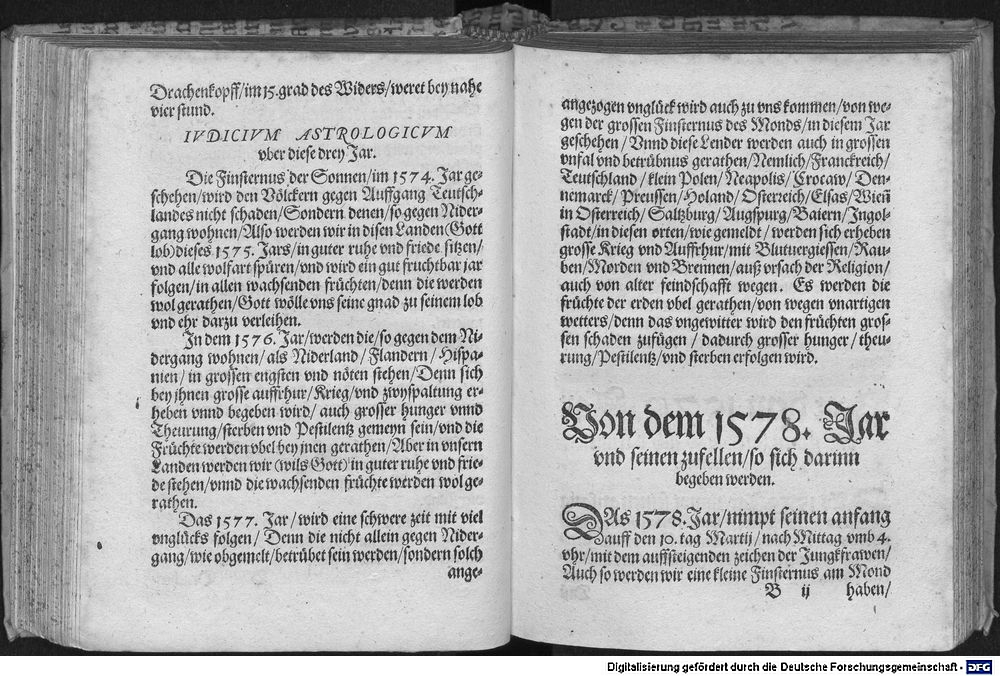 Drachenkopff/im 15.grad des Widers/weret bey nahe
vier stund.
IVDICIVM ASTROLOGICVM
vber diese drey Jar.
Die Finsternus der Sonnen/im 1574. Jar ge-
schehen/wird den Völckern gegen Auffgang Teutsch-
landes nicht schaden/Sondern denen/so gegen Nider-
gang wohnen/Also werden wir in disen Landen (Gott
lob) dieses 1575. Jars/in guter ruhe vnd friede sitzen/
vnd alle wolfart spüren/vnd wird ein gut fruchtbar jar
folgen/in allen wachsenden früchten/denn die werden
wol gerathen/Gott wölle vns seine gnad zu seinem lob
vnd ehr darzu verleihen.
In dem 1576. Jar/werden die/so gegen dem Ni-
dergang wohnen/als Niderland/Flandern/Hispa-
nien/in grossen engsten vnd nöten stehen/Denn sich
bey jhnen grosse auffrhur/Krieg/vnd zwyspaltung er-
heben vnnd begeben wird/auch grosser hunger vnnd
Theurung/sterben vnd Pestilentz gemeyn sein/vnd die
Früchte werden vbel bey jnen gerathen/Aber in vnsern
Landen werden wir (wils Gott) in guter ruhe vnd frie-
de stehen/vnnd die wachsenden früchte werden wol ge-
rathen.
Das 1577. Jar/wird eine schwere zeit mit viel
vnglücks folgen/Denn die nicht allein gegen Nider-
gang/wie obgemelt/betrübet sein werden/sondern solch
ange-
angezogen vnglück wird auch zu vns kommen/von we-
gen der grossen Finsternus des Monds/in diesem Jar
geschehen/Vnnd diese Lender werden auch in grossen
vnfal vnd betrübnus gerathen/Nemlich/Franckreich/
Teutschland/klein Polen/Neapolis/Crocaw/Den-
nemarck/Preussen/Holand/Osterreich/Elsas/Wien̄
in Osterreich/Saltzburg/Augspurg/Baiern/Ingol-
stadt/in diesen orten/wie gemeldt/werden sich erheben
grosse Krieg vnd Auffrhur/mit Blutuergiessen/Rau-
ben/Morden vnd Brennen/auß vrsach der Religion/
auch von alter feindschafft wegen. Es werden die
früchte der erden vbel gerathen/von wegen vnartigen
wetters/denn das vngewitter wird den früchten gros-
sen schaden zufügen/dadurch grosser hunger/theu-
rung/Pestilentz/vnd sterben erfolgen wird.
Von dem 1578. Jar
vnd seinen zufellen/so sich darinn
begeben werden.
DAs 1578. Jar/nimpt seinen anfang
auff den 10. tag Martij/nach Mittag vmb 4.
vhr/mit dem auffsteigenden zeichen der Jungkfrawen/
Auch so werden wir eine kleine Finsternus am Mond
B ij haben/
Digitalisierung gefördert durch die Deutsche Forschungsgemeinschaft - DFG